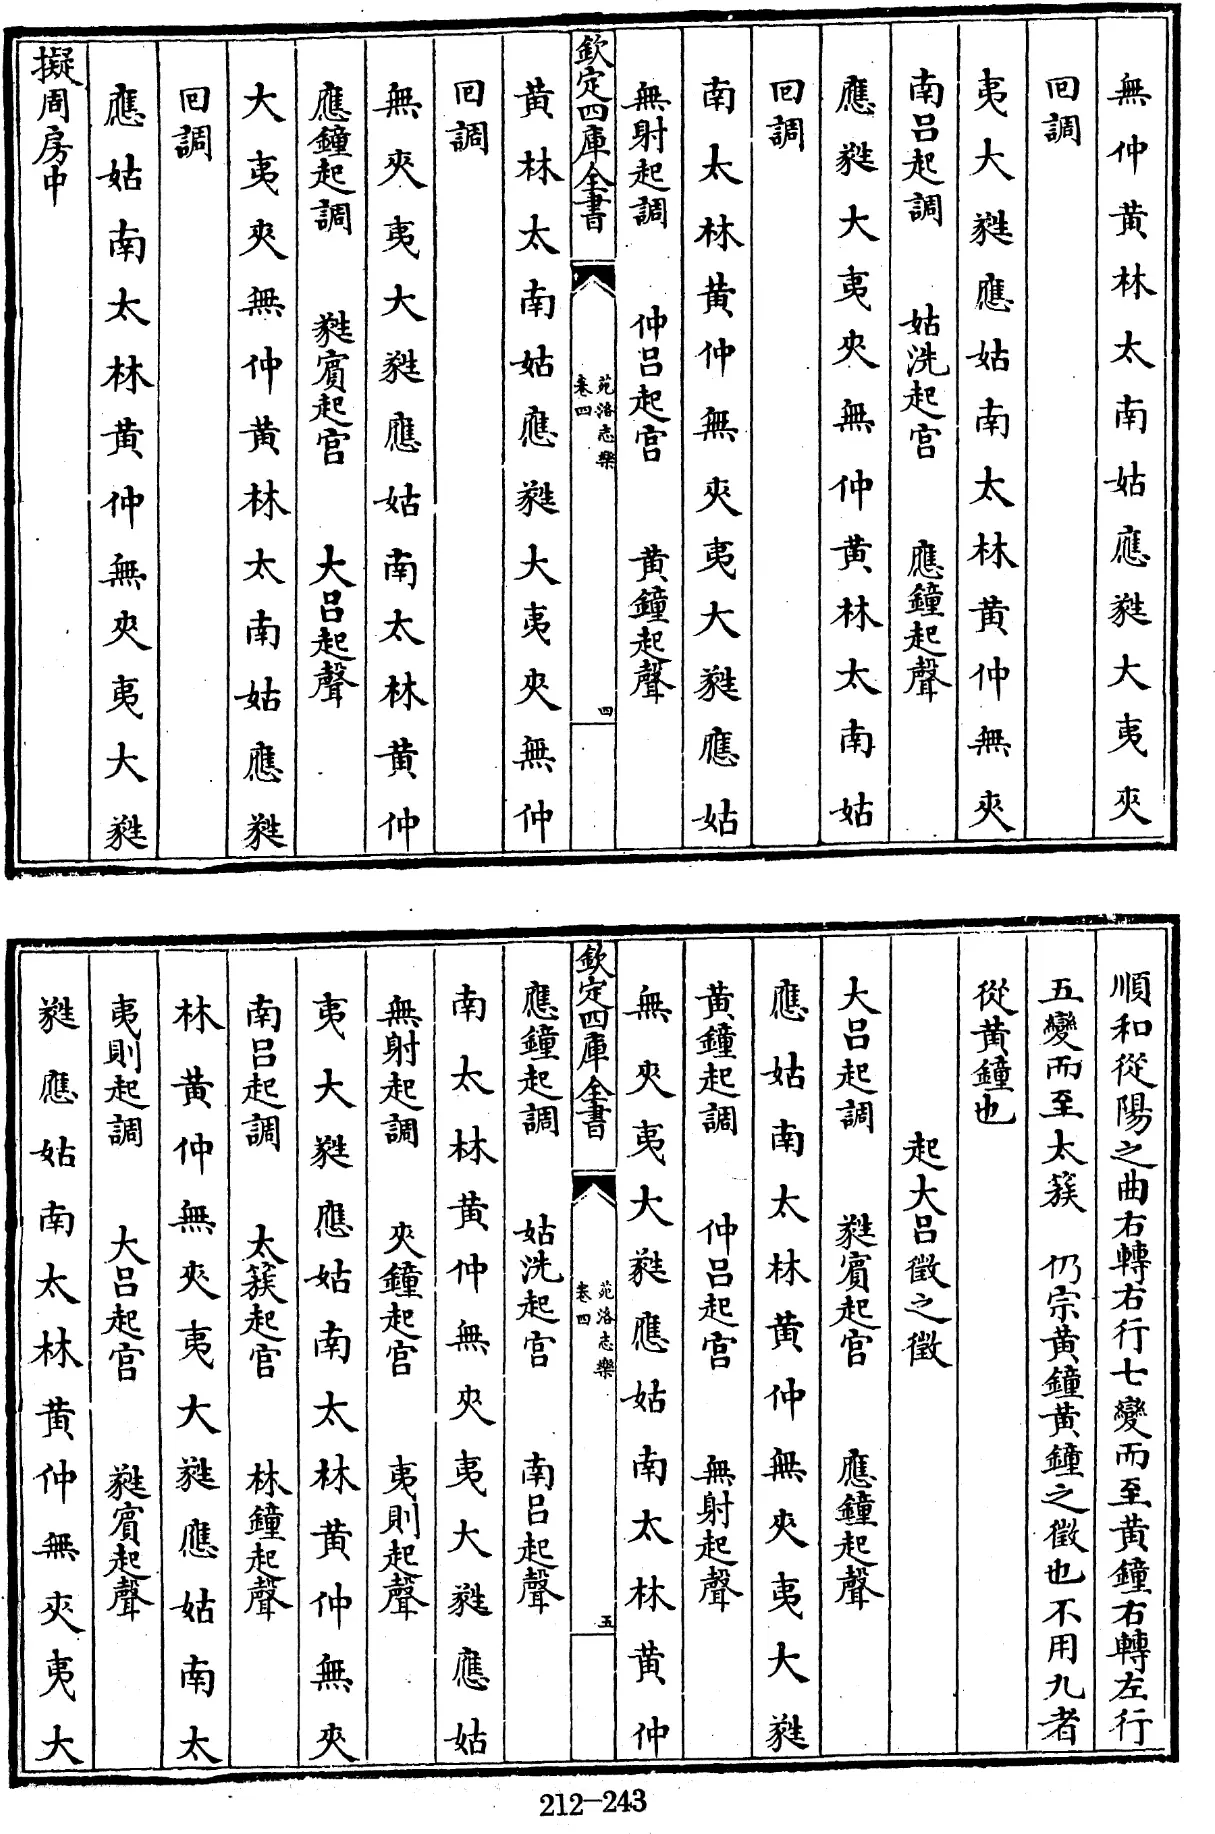 無仲黃林太南姑應蕤大夷夾
回調
夷大蕤應姑南太林黃仲無夾
南呂起調 姑洗起宮 應鐘起聲
應蕤大夷夾無仲黃林太南姑
回調
南太林黃仲無夾夷大蕤應姑
無射起調 仲呂起宮 黃鐘起聲
欽定四庫全書 苑洛志樂 卷四 四
黃林太南姑應蕤大夷夾無仲
回調
無夾夷大蕤應姑南太林黃仲
應鐘起調 蕤賓起宮 大呂起聲
大夷夾無仲黃林太南姑應蕤
回調
應姑南太林黃仲無夾夷大蕤
擬周房中
順和從陽之曲右轉右行七變而至黃鐘右轉左行
五變而至太簇 仍宗黃鐘黃鐘之徵也不用九者
從黃鐘也
起大呂徵之徵
大呂起調 蕤賓起宮 應鐘起聲
應姑南太林黃仲無夾夷大蕤
黃鐘起調 仲呂起宮 無射起聲
無夾夷大蕤應姑南太林黃仲
欽定四庫全書 苑洛志樂 卷四 五
應鐘起調 姑洗起宮 南呂起聲
南太林黃仲無夾夷大蕤應姑
無射起調 夾鐘起宮 夷則起聲
夷大蕤應姑南太林黃仲無夾
南呂起調 太簇起宮 林鐘起聲
林黃仲無夾夷大蕤應姑南太
夷則起調 大呂起宮 蕤賓起聲
蕤應姑南太林黃仲無夾夷大
212-243